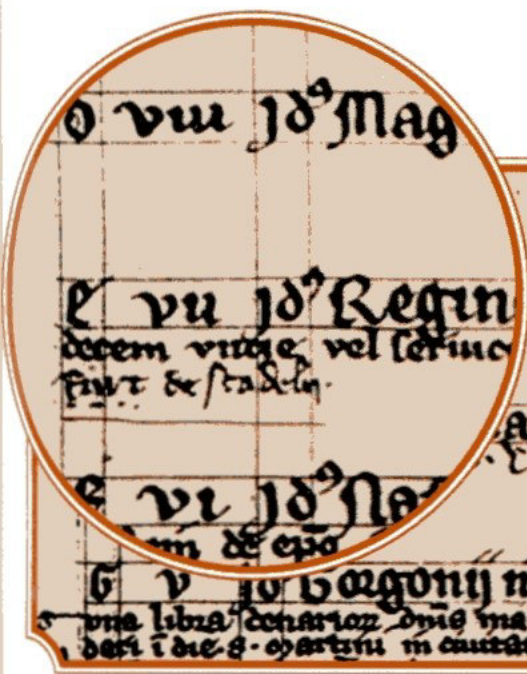 D viii jdꝰ Mag
E vii jdꝰ Regin
decem uncie vel seruic
de stadeln.
vi jdꝰ Nat
de epō
G v jd Gorgonij m
una libra denarioꝝ dn̄is ma
dari ī die s. martini in ciuitat